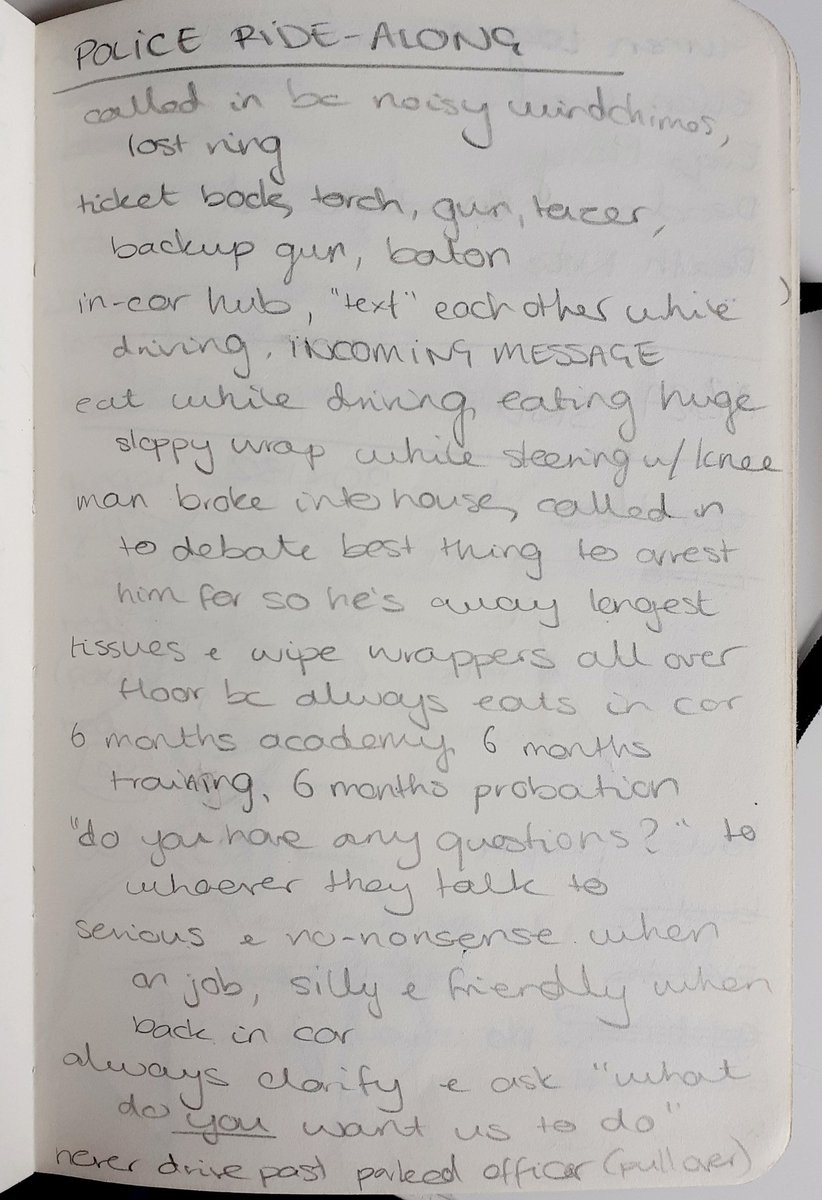 POLICE RIDE-ALONG
called in bc noisy windchimes,
lost ring
ticket book, torch, gun, tazer,
backup gun, baton
in-car hub, "text" each other while
driving. INCOMING MESSAGE
eat while driving, eating huge
sloppy wrap while steering w/ knee
man broke into house, called in
to debate best thing to arrest
him for so he's away longest
tissues & wipe wrappers all over
floor bc always eats in car
6 months academy, 6 months
training, 6 months probation
"do you have any questions?" to
whoever they talk to
serious & no-nonsense when
on job, silly & friendly when
back in car
always clarify & ask "what
do you want us to do"
never drive past parked officer (pull over)